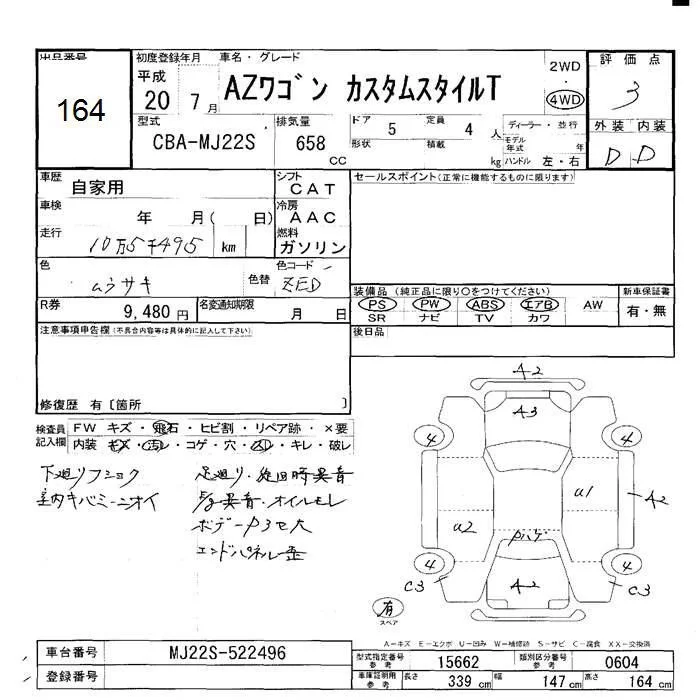 出品番号
164
初度登録年月
平成
20 7月
車名・グレード
AZワゴン カスタムスタイルT
2WD
・
4WD
評価点
3
型式
CBA-MJ22S
排気量
658
CC
ドア 5
形状
定員 4 人
積載 kg
ディーラー・並行
モデル年式 年
ハンドル 左・右
外装 内装
D D
車歴
自家用
シフト
CAT
セールスポイント(正常に機能するものに限ります)
車検
年 月( 日)
冷房
AAC
走行
10万5千495 km
燃料
ガソリン
色
ムラサキ
色替
色コード
ZED
装備品 (純正品に限り○をつけてください)
PS PW ABS エアB AW
SR ナビ TV カワ
新車保証書
有・無
R券
9,480 円
名変通知期限
月 日
後日品
注意事項申告欄 (不具合内容等は具体的に記入して下さい)
修復歴 有〔箇所 〕
検査員記入欄
FW キズ・飛石・ヒビ割・リペア跡・×要
内装 キズ・汚レ・コゲ・穴・スレ・キレ・破レ
下廻りフショク
室内キバミ・ニオイ
足廻り・旋回時異音
異音・オイルモレ
ボデー
エンドパネル歪
A2
A3
4 4
A2
u1
u2
Pハゲ
4 4
C3 C3
A2
有
スペア
A－キズ E－エクボ U－凹み W－補修跡 S－サビ C－腐食 XX－交換済
車台番号
MJ22S-522496
登録番号
型式指定番号
参考
15662
類別区分番号
参考
0604
車庫証明用
参考
長さ 339 cm
幅 147 cm
高さ 164 cm